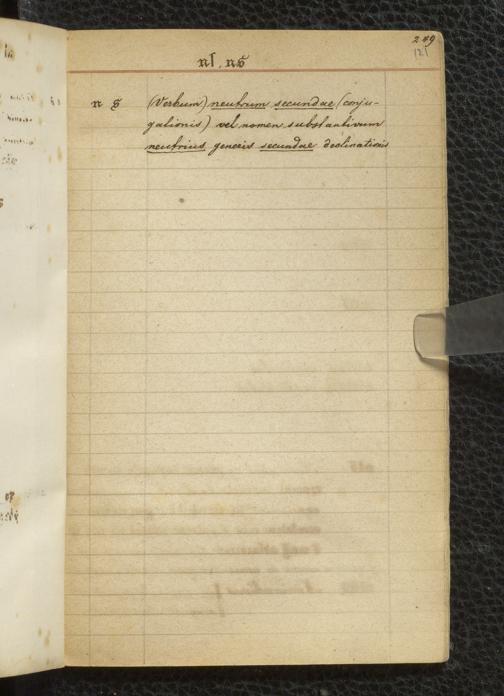 249
121
nſ, nẜ
n ẜ (Verbum) neutrum secundae (conju-
gationis) vel nomen substantivum
neutrius generis secundae declinationis